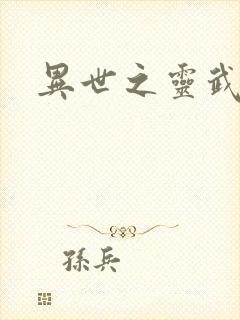 異世之靈武
孫兵